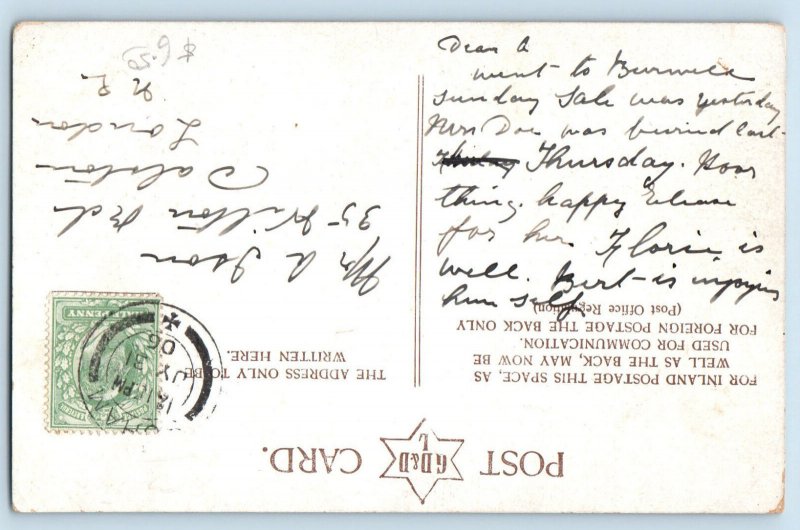 Dear A
went to Burwell
Sunday Sale was yesterday
Mrs Doe was buried last
Thursday. Poor
thing. happy release
for her Florie is
well. Bert is injoying
him self
POST CARD.
G.D&D
L
FOR INLAND POSTAGE THIS SPACE, AS
WELL AS THE BACK, MAY NOW BE
USED FOR COMMUNICATION.
FOR FOREIGN POSTAGE THE BACK ONLY
(Post Office Regulation)
THE ADDRESS ONLY TO BE
WRITTEN HERE.
Mr A Ison
35 Wilton Rd
Dalston
London
N.E
HALFPENNY
PM
JY
06
$6.50